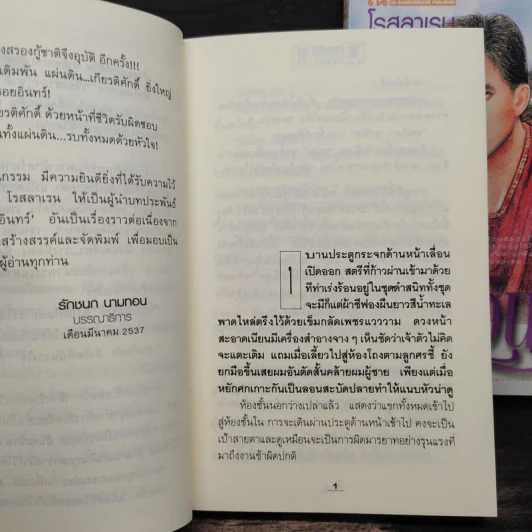 งสรองกู้ชาติจึงอุบัติ อีกครั้ง!!!
เดิมพัน แผ่นดิน...เกียรติศักดิ์ ยิ่งใหญ่
รอยอินทร์!
ยรติศักดิ์ ด้วยหน้าที่ชีวิตรับผิดชอบ
นทั้งแผ่นดิน...รบทั้งหมดด้วยหัวใจ!
กรรม มีความยินดียิ่งที่ได้รับความไว้
โรสลาเรน ให้เป็นผู้นำบทประพันธ์
อินทร์' อันเป็นเรื่องราวต่อเนื่องจาก
สร้างสรรค์และจัดพิมพ์ เพื่อมอบเป็น
ผู้อ่านทุกท่าน
รักชนก นามทอน
บรรณาธิการ
เดือนมีนาคม 2537
1
บานประตูกระจกด้านหน้าเลื่อน
เปิดออก สตรีที่ก้าวผ่านเข้ามาด้วย
ทีท่าเร่งร้อนอยู่ในชุดดำสนิททั้งชุด
จะมีก็แต่ผ้าชีฟองผืนยาวสีน้ำทะเล
พาดไหล่ตรึงไว้ด้วยเข็มกลัดเพชรแวววาม ดวงหน้า
สะอาดเนียนมีเครื่องสำอางจาง ๆ เห็นชัดว่าเจ้าตัวไม่คิด
จะแตะเติม แถมเมื่อเลี้ยวไปสู่ห้องโถงตามลูกศรชี้ ยัง
ยกมือขึ้นเสยผมอันตัดสั้นคล้ายผมผู้ชาย เพียงแต่เมื่อ
หยักศกเกาะกันเป็นลอนสะบัดปลายทำให้แนบหัวน่าดู
ห้องชั้นนอกว่างเปล่าแล้ว แสดงว่าแขกทั้งหมดเข้าไป
สู่ห้องชั้นใน การจะเดินผ่านประตูด้านหน้าเข้าไป คงจะเป็น
เป้าสายตาและดูเหมือนจะเป็นการผิดมารยาทอย่างรุนแรงที่
มาถึงงานช้าผิดปกติ
1
โรสลาเรน